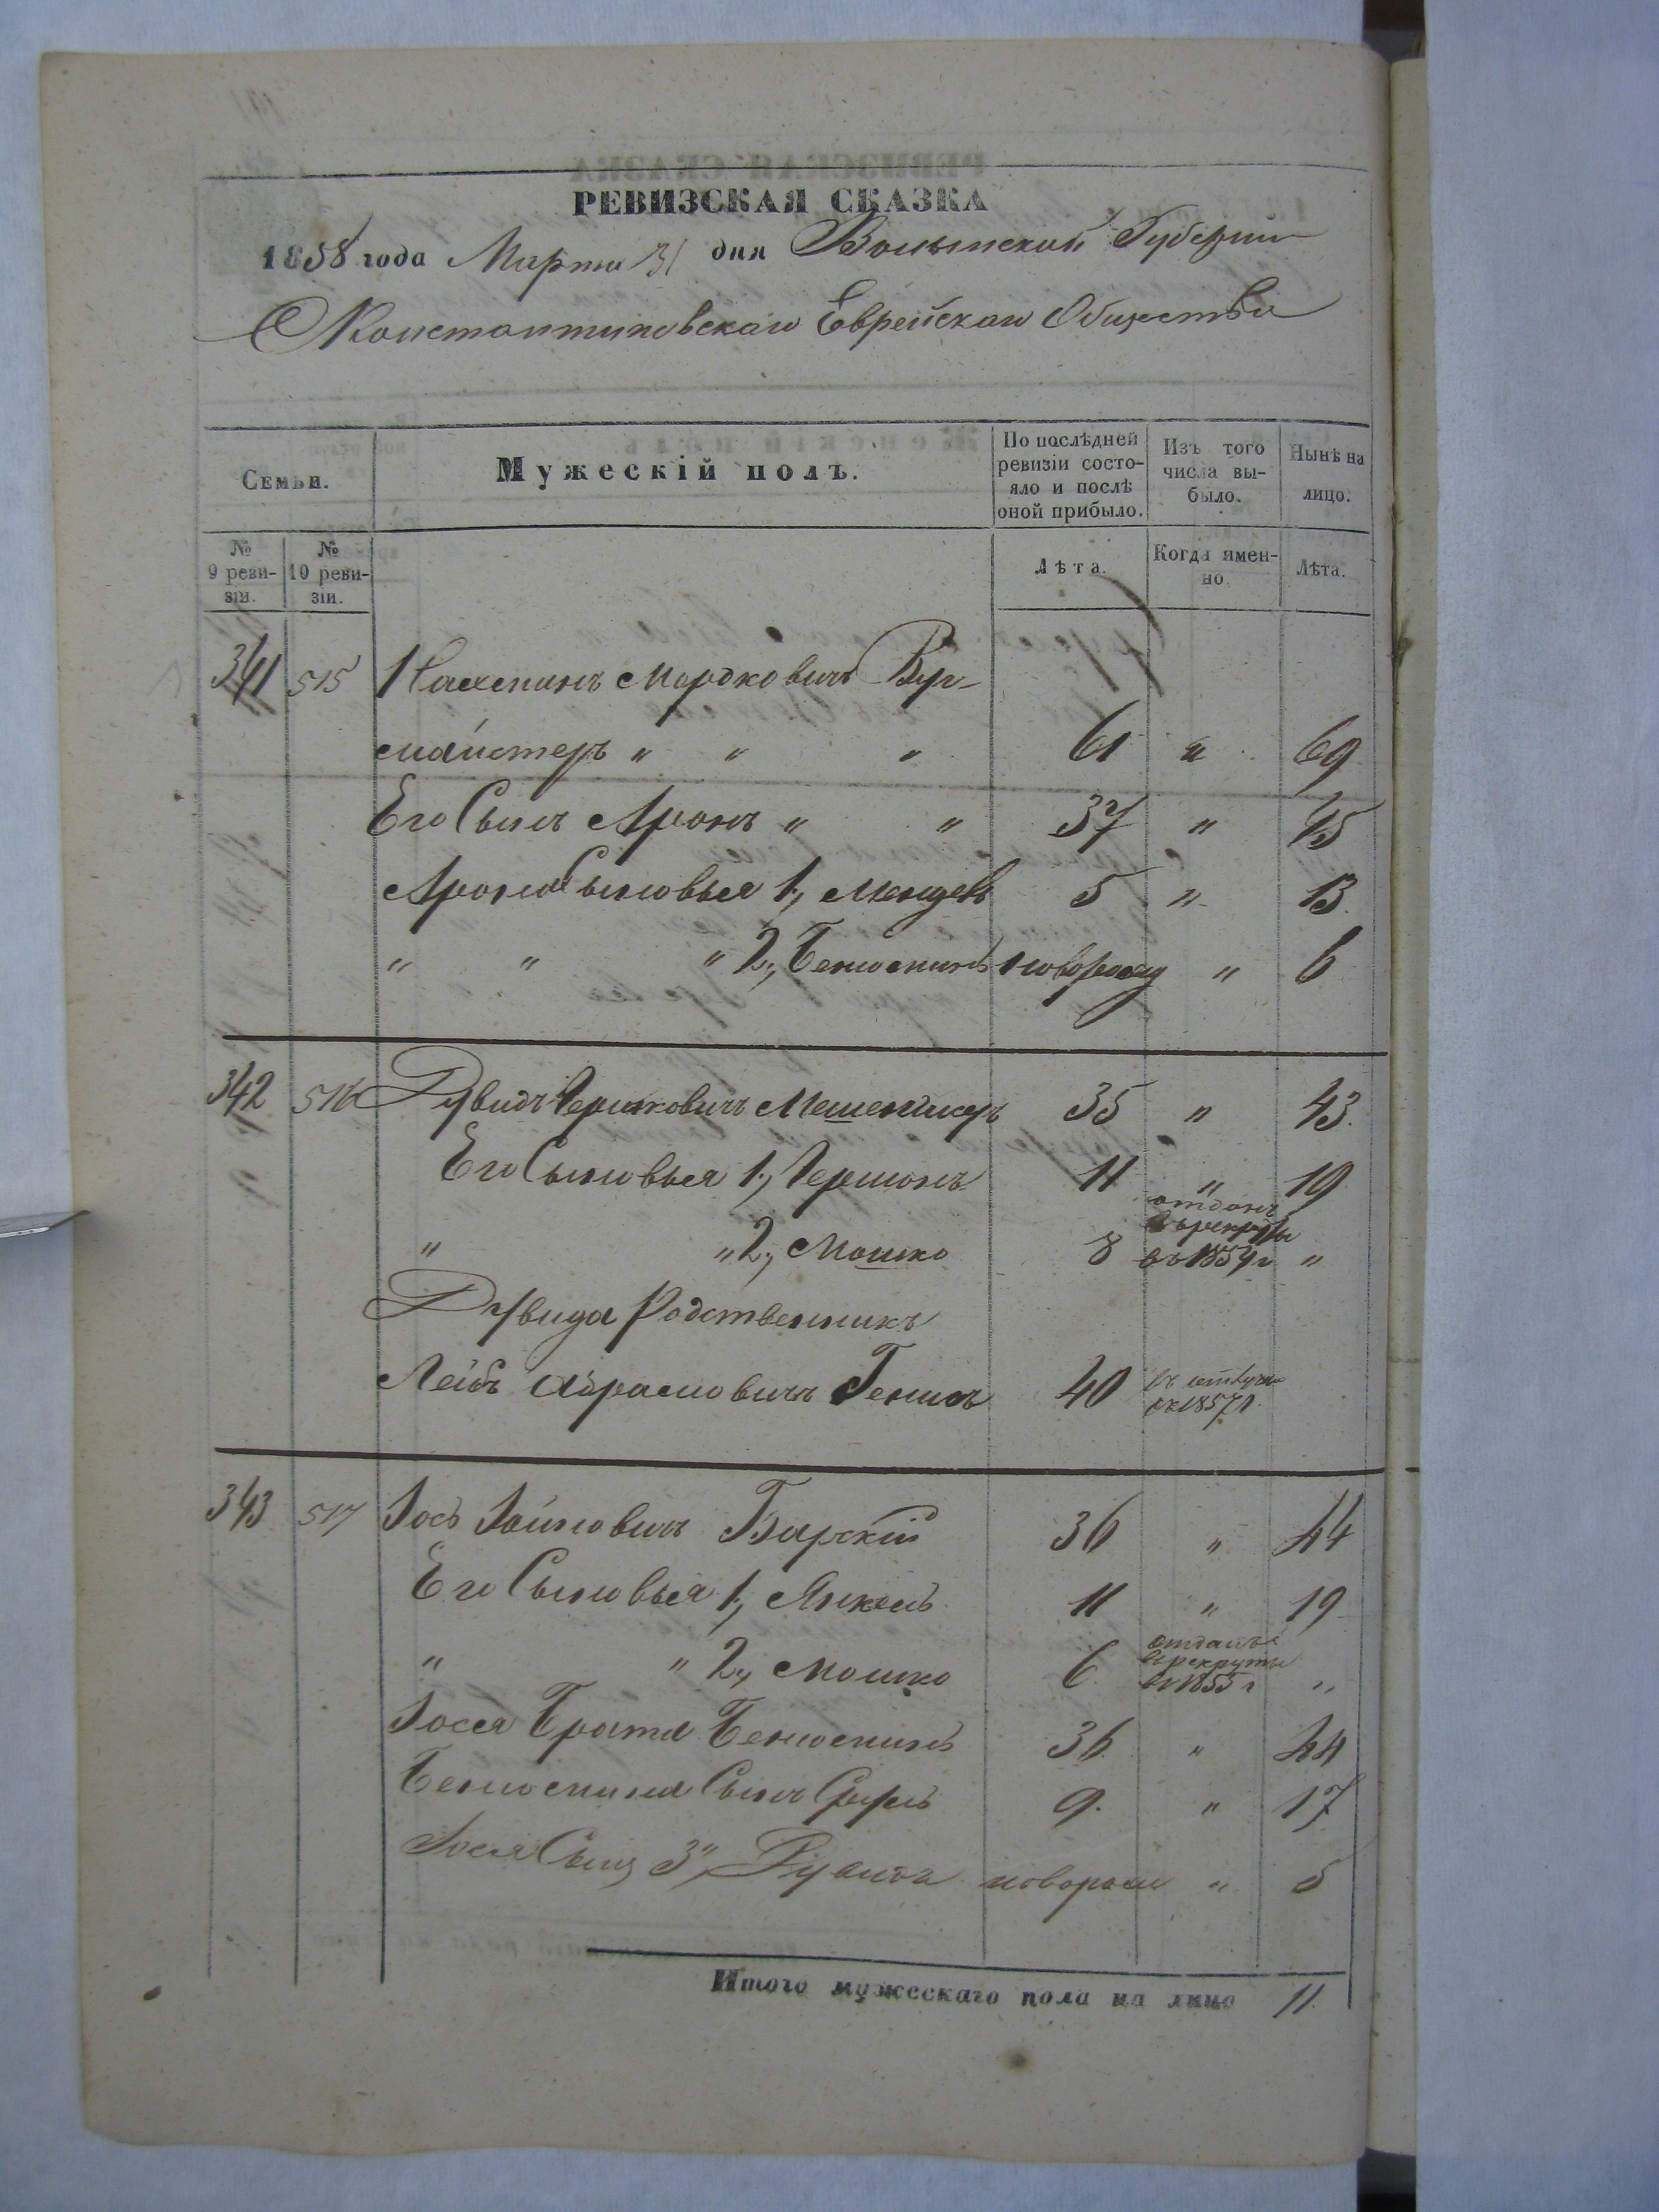 РЕВИЗСКАЯ СКАЗКА
1858 года Марта 31 дня Волынской Губерніи
Константиновскаго Еврейскаго Общества
Семьи.
Мужескій полъ.
По послѣдней ревизіи состо-
яло и послѣ
оной прибыло.
Изъ того
числа вы-
было.
Нынѣ на
лицо.
№
9 реви-
зіи.
№
10 реви-
зіи.
Лѣта.
Когда имен-
но.
Лѣта.
341 515 Нахманъ Мордковичъ Вуг-
майстеръ " " " 61 " 69
Его Сынъ Аронъ " " 37 " 45
Арона Сыновья 1, Мендель 5 " 13
" " " 2, Беньоминъ новорожд " 6
342 516 Рувидъ Гершковичъ 35 " 43
Его Сыновья 1, Гершонъ 11 " 19
" " 2, Мошко 8 отданъ
въ рекруты
въ 1854 г "
Рувида Родственникъ
Лейбъ Абрамовичъ 40
въ 1857 г.
343 517 Іось Барскій 36 " 44
Его Сыновья 1, Янкель 11 " 19
" " 2, Мошко 6 отданъ
въ рекруты
въ 1855 г "
Іося Братъ Беньоминъ 36 " 44
Беньомина Сынъ Сруль 9. " 17
Іося Сынъ 3, Рувинъ новорож " 5
Итого мужескаго пола на лицо 11